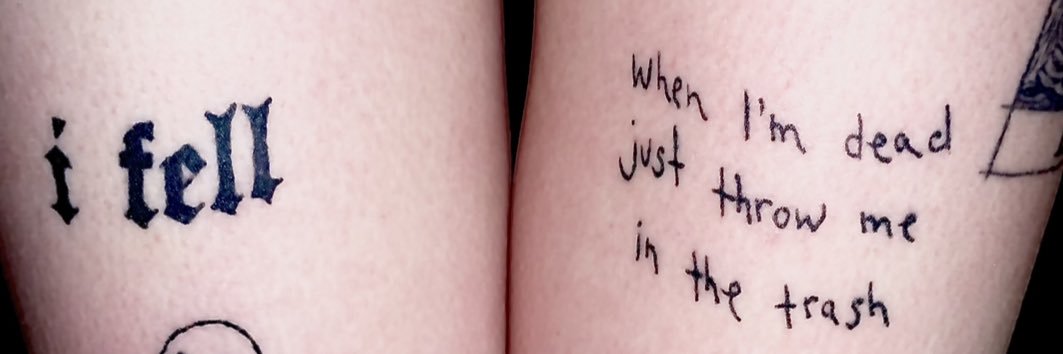 i fell
When I'm dead
just throw me
in the trash